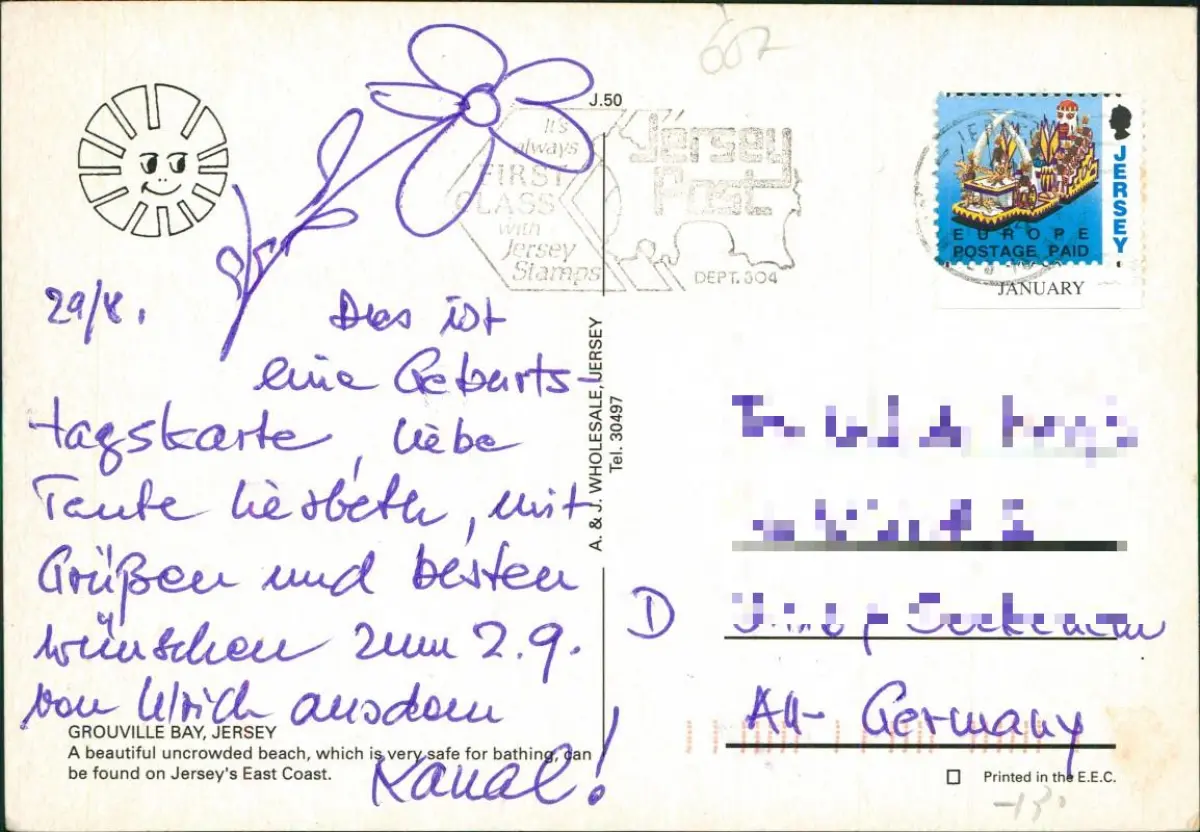 J.50
It's
always
FIRST
CLASS
with
Jersey
Stamps
Jersey
Post
DEPT.304
JERSEY
EUROPE
POSTAGE PAID
JANUARY
29/8.
Das ist
eine Geburts-
tagskarte, liebe
Tante Liesbeth, mit
Grüßen und besten
Wünschen zum 2.9.
von Ulrich aus dem
Kanal!
GROUVILLE BAY, JERSEY
A beautiful uncrowded beach, which is very safe for bathing, can
be found on Jersey's East Coast.
A. & J. WHOLESALE, JERSEY
Tel. 30497
D
Germany
Printed in the E.E.C.